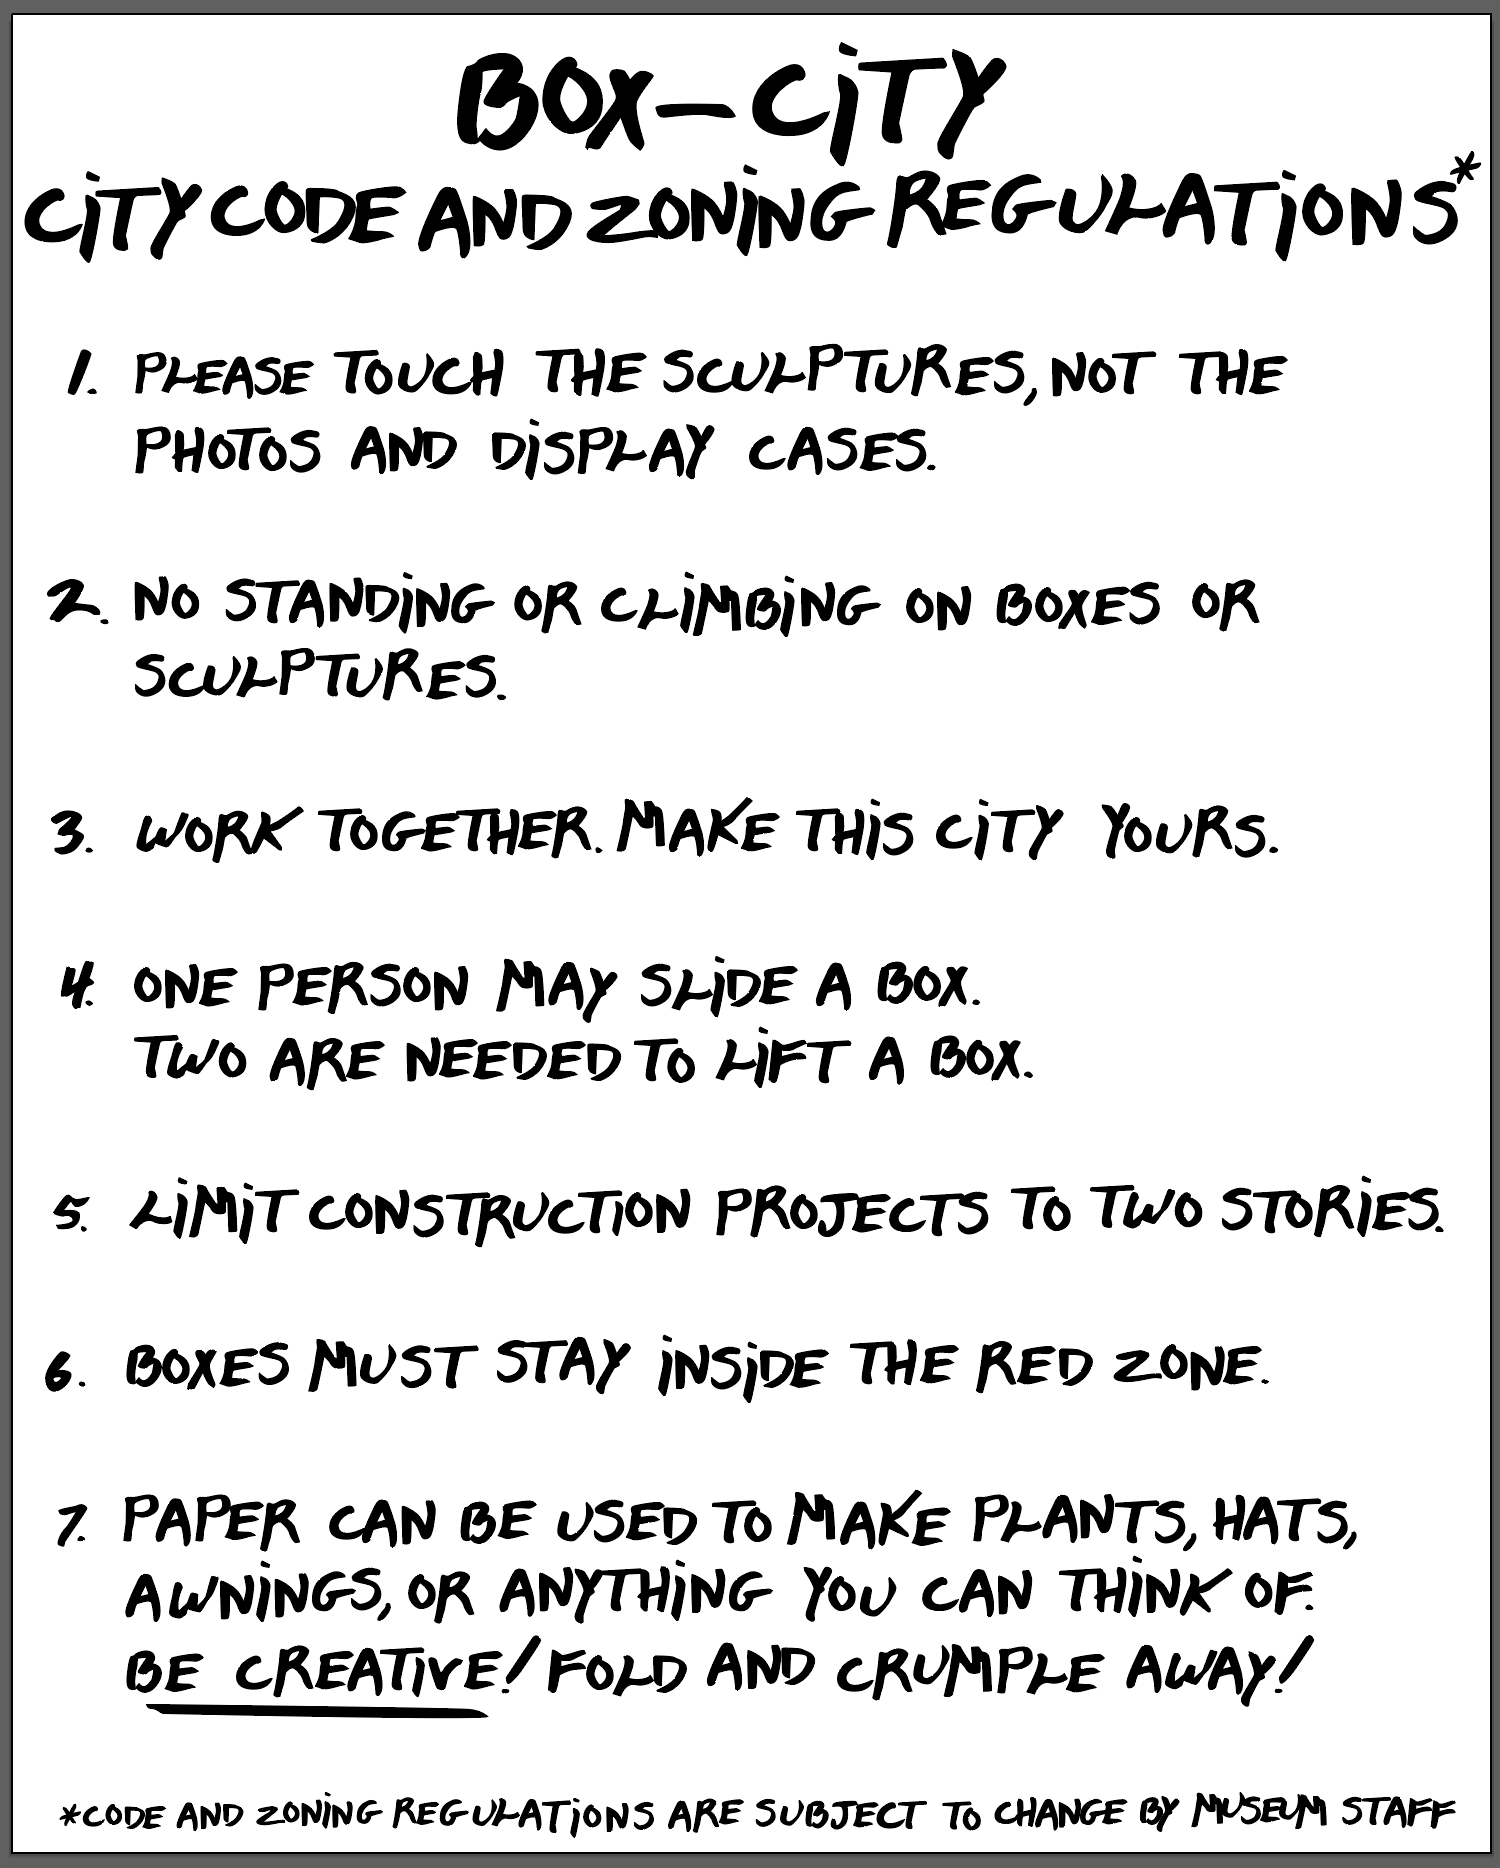 BOX-CiTY
CiTY CODE AND ZONiNG REGULATiONS*
1. PLEASE TOUCH THE SCULPTURES, NOT THE
PHOTOS AND DiSPLAY CASES.
2. NO STANDiNG OR CLiMBiNG ON BOXES OR
SCULPTURES.
3. WORK TOGETHER. MAKE THiS CiTY YOURS.
4. ONE PERSON MAY SLiDE A BOX.
TWO ARE NEEDED TO LiFT A BOX.
5. LiMiT CONSTRUCTiON PROJECTS TO TWO STORiES.
6. BOXES MUST STAY iNSiDE THE RED ZONE.
7. PAPER CAN BE USED TO MAKE PLANTS, HATS,
AWNiNGS, OR ANYTHiNG YOU CAN THiNK OF.
BE CREATiVE! FOLD AND CRUMPLE AWAY!
*CODE AND ZONiNG REGULATiONS ARE SUBJECT TO CHANGE BY MUSEUM STAFF